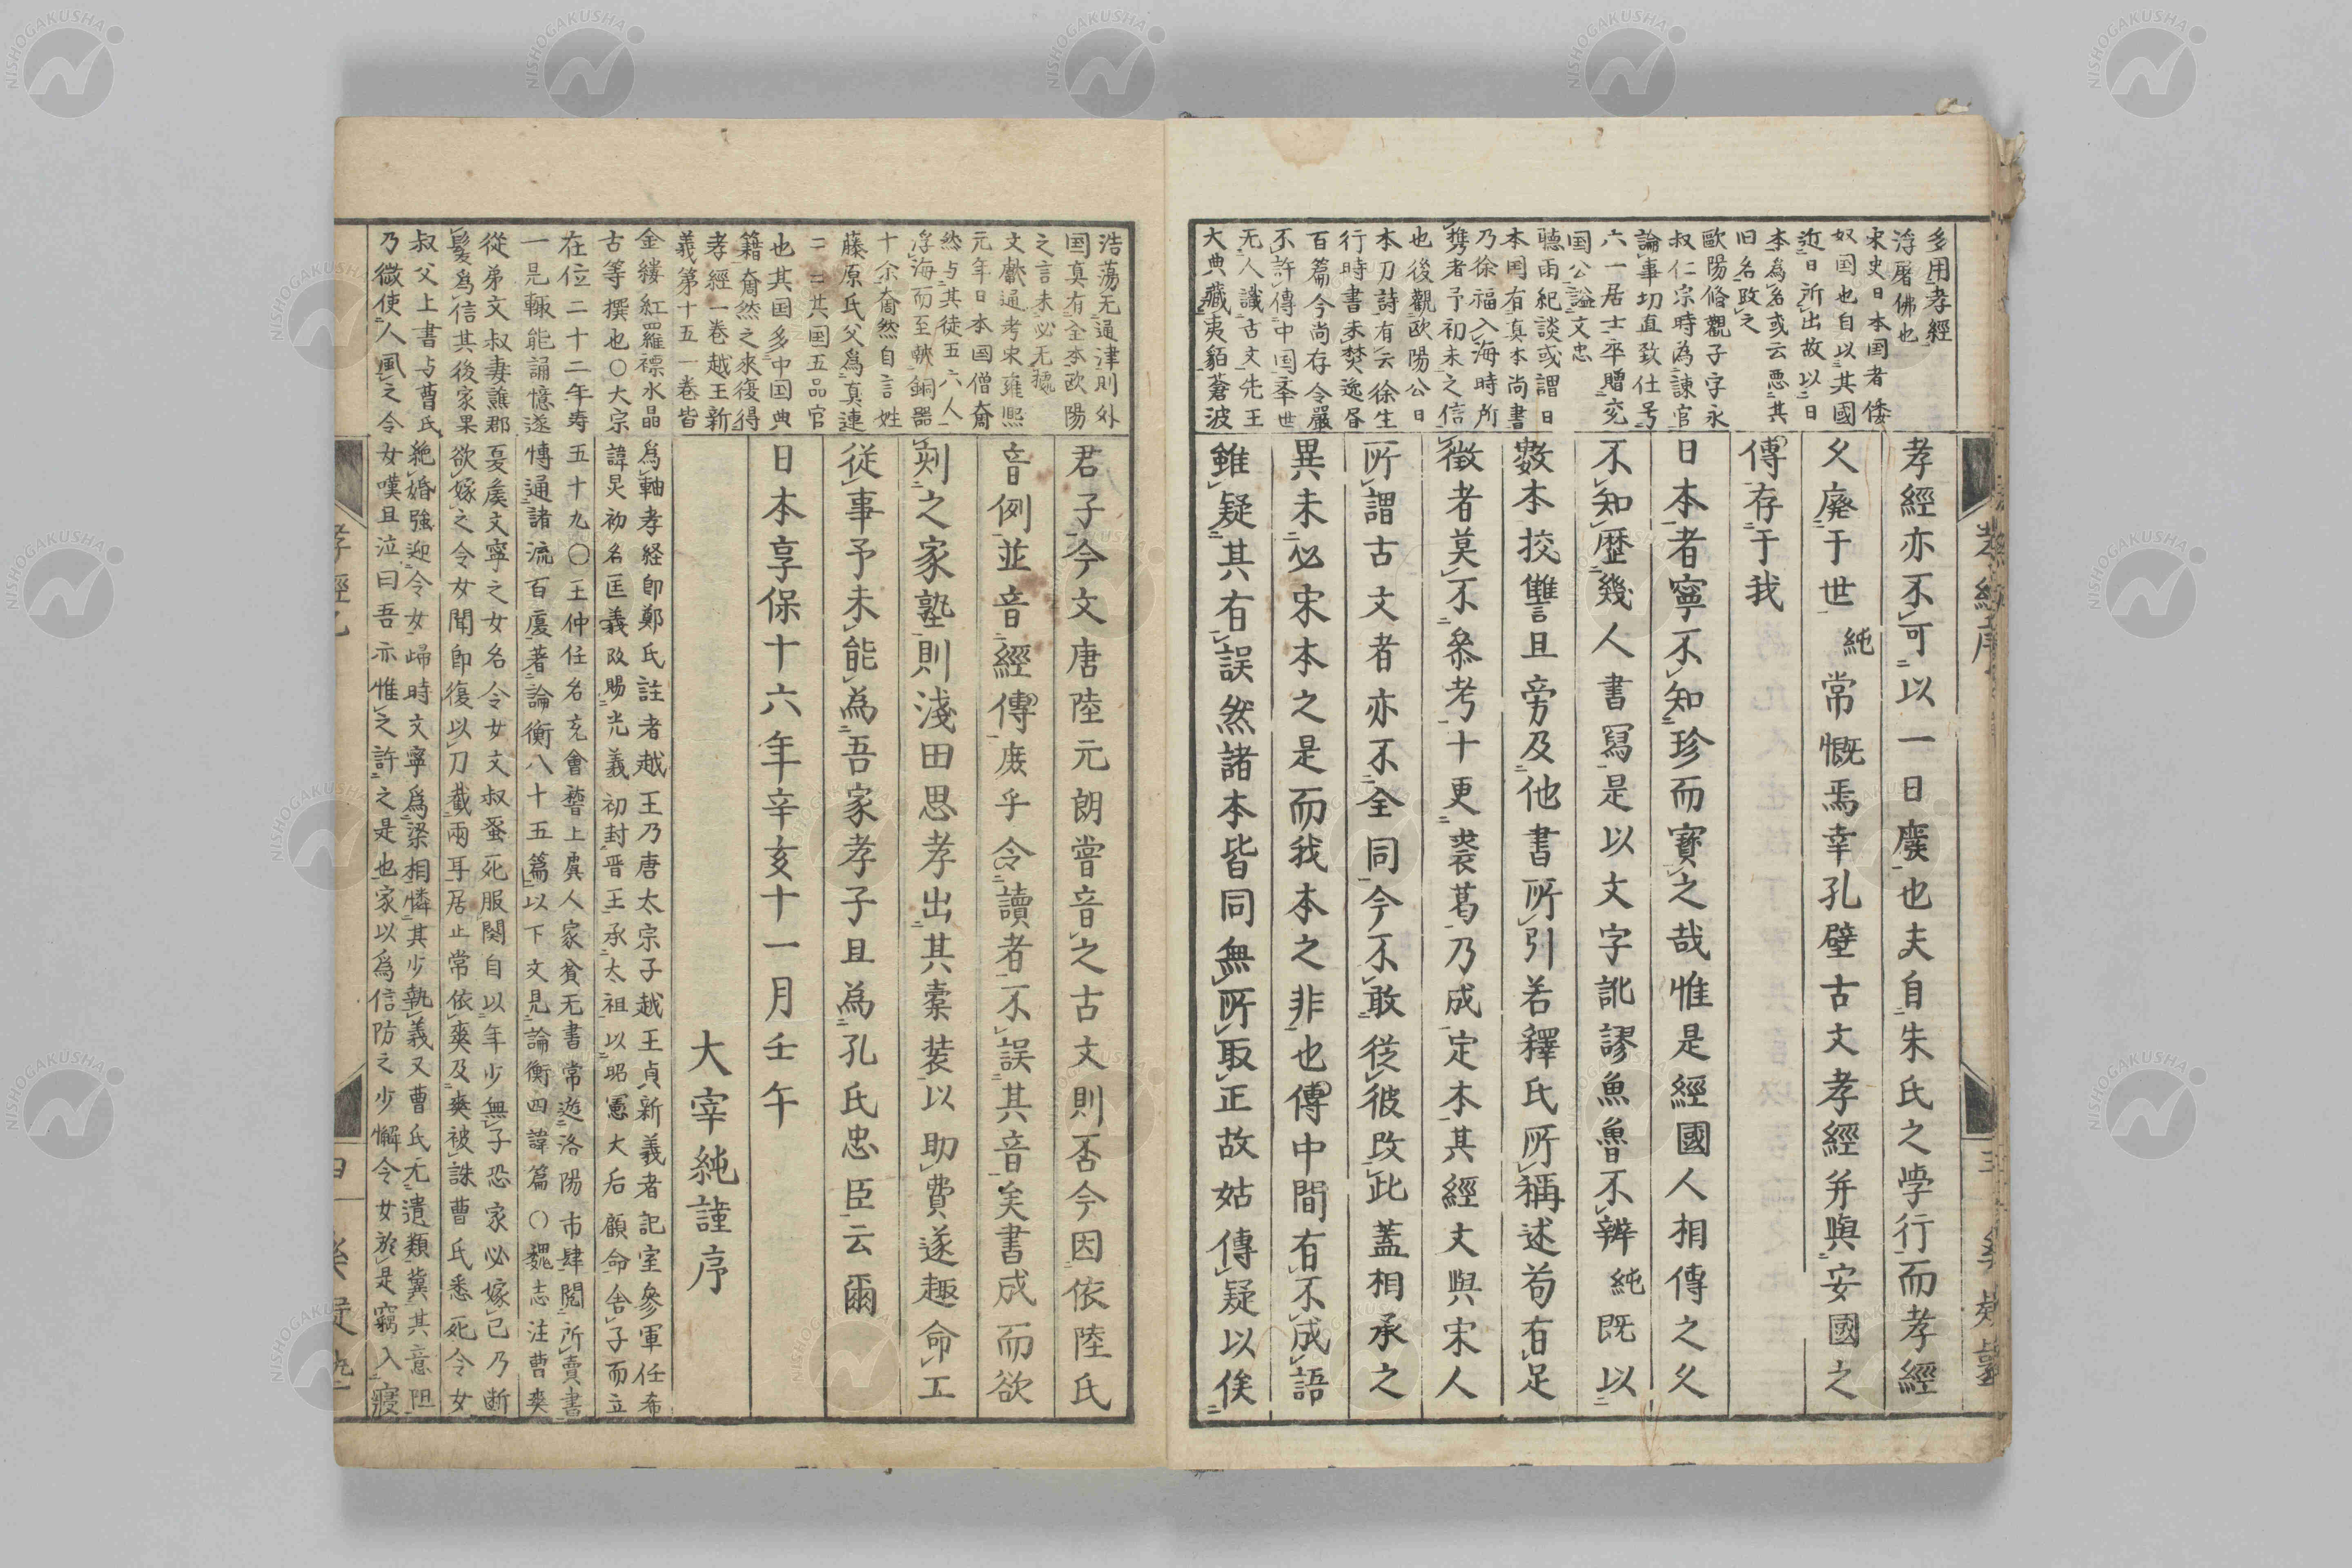 多用孝經
浮屠佛也
宋史曰日本国者倭
奴国也自以其國
近日所出故以日
本為名或云悪其
旧名改之
歐陽脩觀子字永
叔仁宗時為諌官
論事切直致仕号
六一居士卒贈兖
国公謚文忠
聴雨紀談或謂日
本国有真本尚書
乃徐福入海時所
携者予初未之信
也後觀欧陽公日
本刀詩有云徐生
行時書未焚逸昏
百篇今尚存令嚴
不許傳中国拳世
无人識古文先王
大典藏夷貊蒼波
孝經亦不可以一日廢也夫自朱氏之學行而孝經
久廢于世純常慨焉幸孔壁古文孝經并與安國之
傳存于我
日本者寧不知珍而寳之哉惟是經國人相傳之久
不知歴幾人書寫是以文字訛謬魚魯不辨純既以
數本挍讐且旁及他書所引若釋氏所稱述苟有足
徴者莫不叅考十更裘葛乃成定本其經文與宋人
所謂古文者亦不全同今不敢從彼改此蓋相承之
異未必宋本之是而我本之非也傳中間有不成語
雖疑其有誤然諸本皆同無所取正故姑傳疑以俟
孝經序
三
浩蕩无通津則外
国真有全本欧陽
之言未必无㨿
文獻通考宋雍熈
元年日本国僧奝
然与其徒五六人
浮海而至献銅器
十余奝然自言姓
藤原氏父為真連
二二其国五品官
也其国多中国典
籍奝然之来復得
孝經一巻越王新
義第十五一巻皆
金縷紅羅褾水晶
古等撰也〇大宗
在位二十二年寿
一見輙能誦憶遂
從弟文叔妻譙郡
髪為信其後家果
叔父上書与曹氏
乃微使人風之令
君子今文唐陸元朗嘗音之古文則否今因依陸氏
音例並音經傳庻乎令讀者不誤其音矣書成而欲
刻之家塾則淺田思孝出其橐装以助費遂趣命工
從事予未能為吾家孝子且為孔氏忠臣云爾
日本享保十六年辛亥十一月壬午
大宰純謹序
為軸孝经即鄭氏註者越王乃唐太宗子越王貞新義者記室參軍任希
諱炅初名匡義改賜光義初封晋王承太祖以昭憲大后顧命舎子而立
五十九〇王仲任名充會稽上虞人家貧无書常遊洛陽市肆閲所賣書
愽通諸流百家著論衡八十五篇以下文見論衡四諱篇〇魏志注曹爽
夏矦文寧之女名令女文叔蚤死服闋自以年少無子恐家必嫁己乃断
欲嫁之令女聞即復以刀截兩耳居止常依爽及爽被誅曹氏悉死令女
絶婚強迎令女歸時文寧為梁相憐其少執義又曹氏无遺類冀其意阻
女嘆且泣曰吾亦惟之許之是也家以為信防之少懈令女於是竊入寢
孝經
四